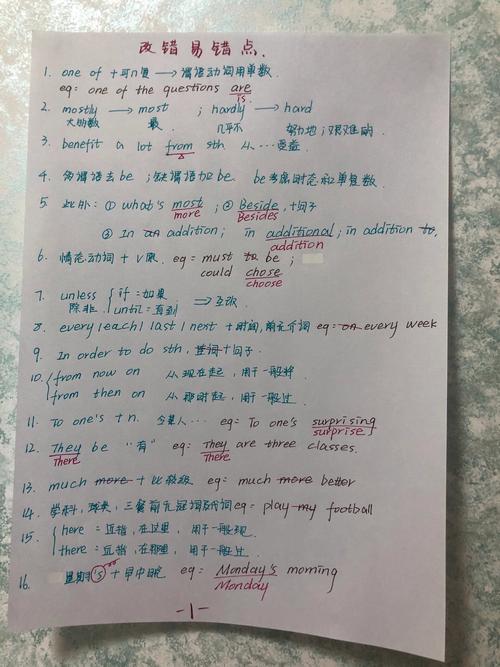 改错易错点.
1. one of + 可n复 → 谓语动词用单数.
eg: one of the questions are
is
2. mostly → most ; hardly → hard
大多数 最. 几乎不 努力地;艰难的.
3. benefit a lot from sth 从…受益.
4. 多谓语去be ;缺谓语加be. be考虑时态和单复数.
5. 此外: ① what's most ; ② Beside, +句子
more Besides
③ In an addition; in additional; in addition to,
addition
6. 情态动词 + v原. eg: must to be ;
could chose
choose
7. unless if = 如果
除非. until = 直到 ⇒ 互改.
8. every | each | last | next + 时间, 前无介词 eg: on every week
9. In order to do sth, 主词+句子.
10. from now on 从现在起, 用于一般将
from then on 从那时起, 用于一般过.
11. To one's + n. 令某人… eg: To one's surprising
surprise
12. They be "有" eg: They are three classes.
There There
13. much more + 比较级 eg: much more better
14. 学科, 球类, 三餐前无冠词及代词 eg: play my football
15. here = 近指, 在这里, 用于一般现.
there = 远指, 在那里, 用于一般过.
16. 星期's + 早中晚 eg: Monday's morning
Monday
-1-